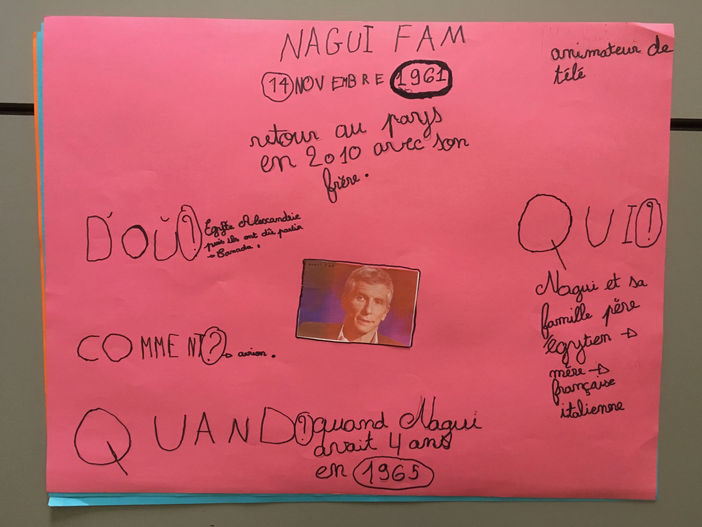 NAGUI FAM
14 NOVEMBRE 1961
animateur de
télé
retour au pays
en 2010 avec son
frère.
D'OÙ?
Egypte Alexandrie
puis ils ont dû partir
→ Canada.
QUI?
Nagui et sa
famille père
Egytien →
mère →
française
italienne
COMMENT? → avion.
QUAND? quand Nagui
avait 4 ans
en 1965